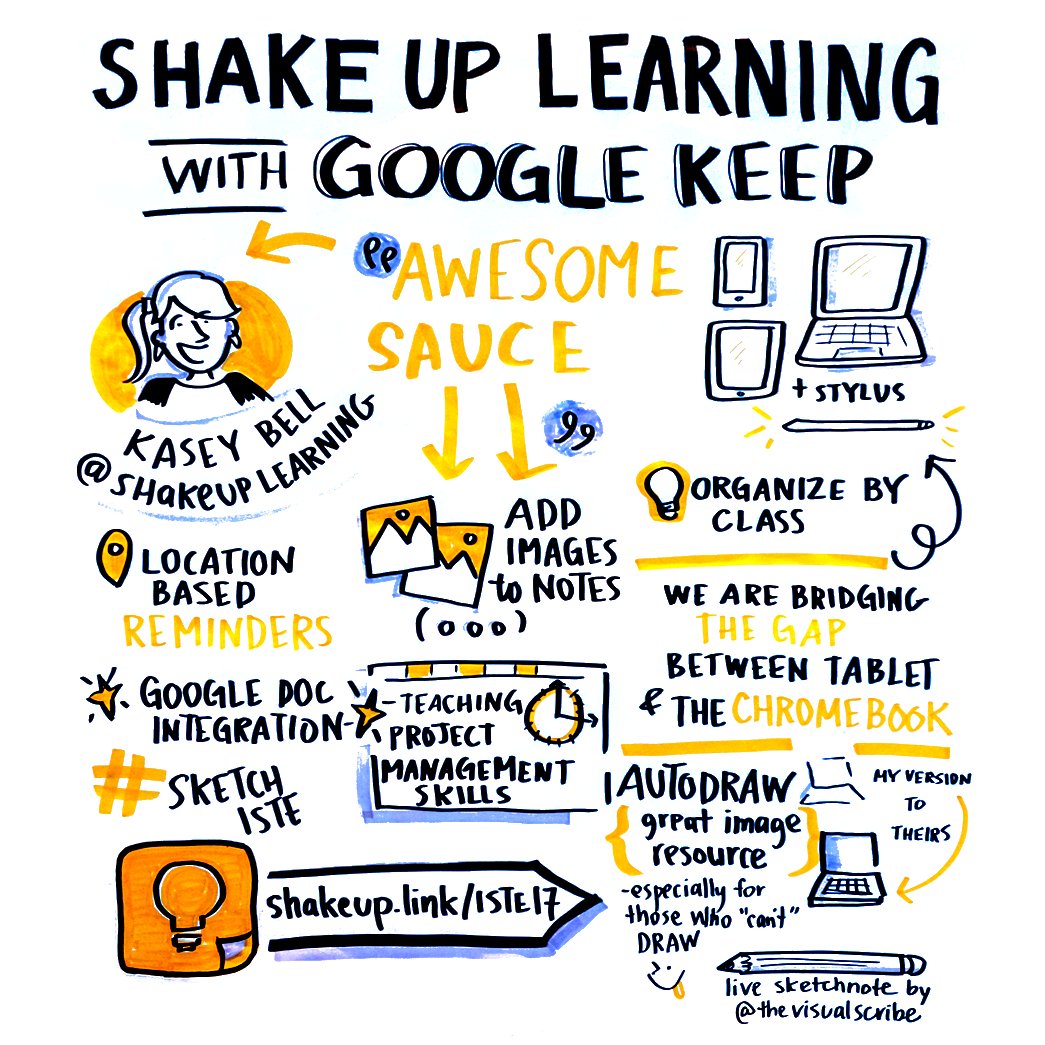 SHAKE UP LEARNING
WITH GOOGLE KEEP
"AWESOME
SAUCE"
KASEY BELL
@SHAKEUPLEARNING
+ STYLUS
ORGANIZE BY
CLASS
LOCATION
BASED
REMINDERS
ADD
IMAGES
to NOTES
(ooo)
WE ARE BRIDGING
THE GAP
BETWEEN TABLET
& THE CHROMEBOOK
GOOGLE DOC
INTEGRATION
- TEACHING
PROJECT
MANAGEMENT
SKILLS
#SKETCH
ISTE
AUTODRAW
{great image
resource}
-especially for
those who "can't"
DRAW
MY VERSION
TO
THEIRS
shakeup.link/ISTE17
live sketchnote by
@thevisualscribe